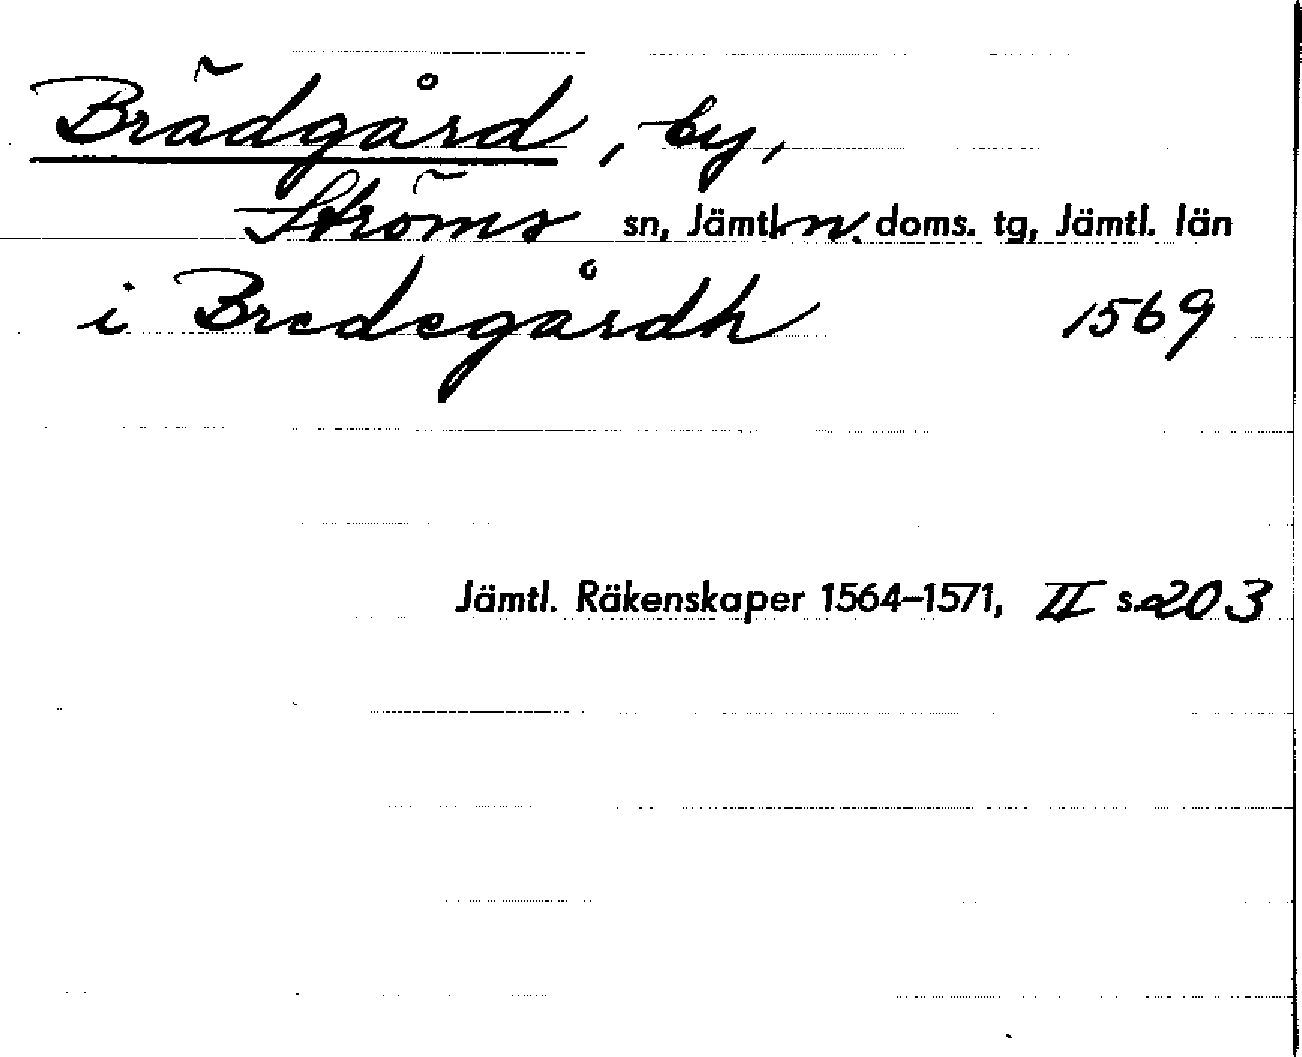 Brädgård, by,
Ströms sn, Jämtl. n. doms. tg, Jämtl. län
i Bredegårdh 1569
Jämtl. Räkenskaper 1564–1571, II s. 203